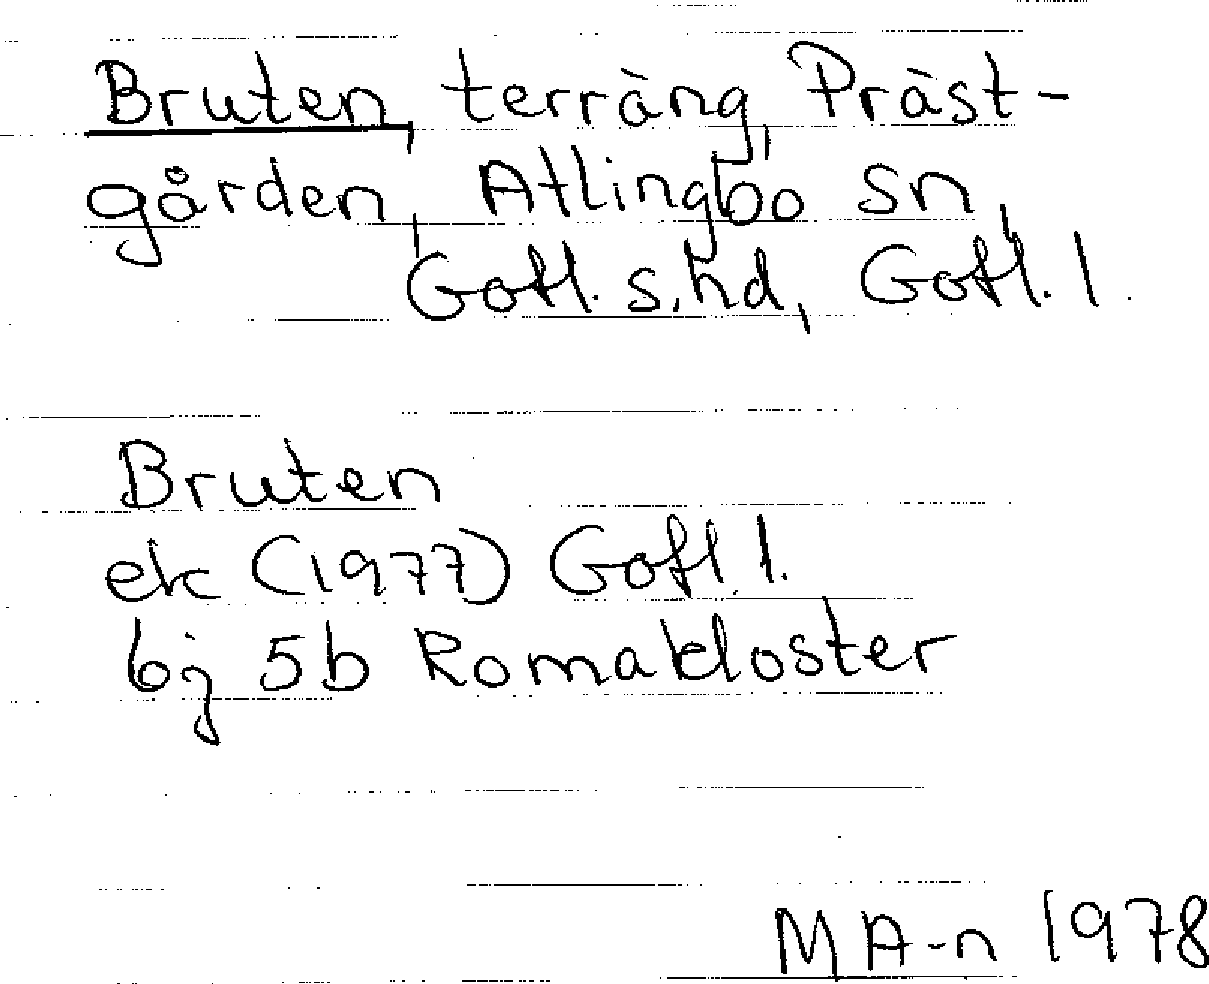 Bruten, terräng, Präst-
gården, Atlingbo sn,
Gotl. s. hd, Gotl. l.
Bruten
ek (1977) Gotl. l.
6j 5b Romakloster
MA-n 1978